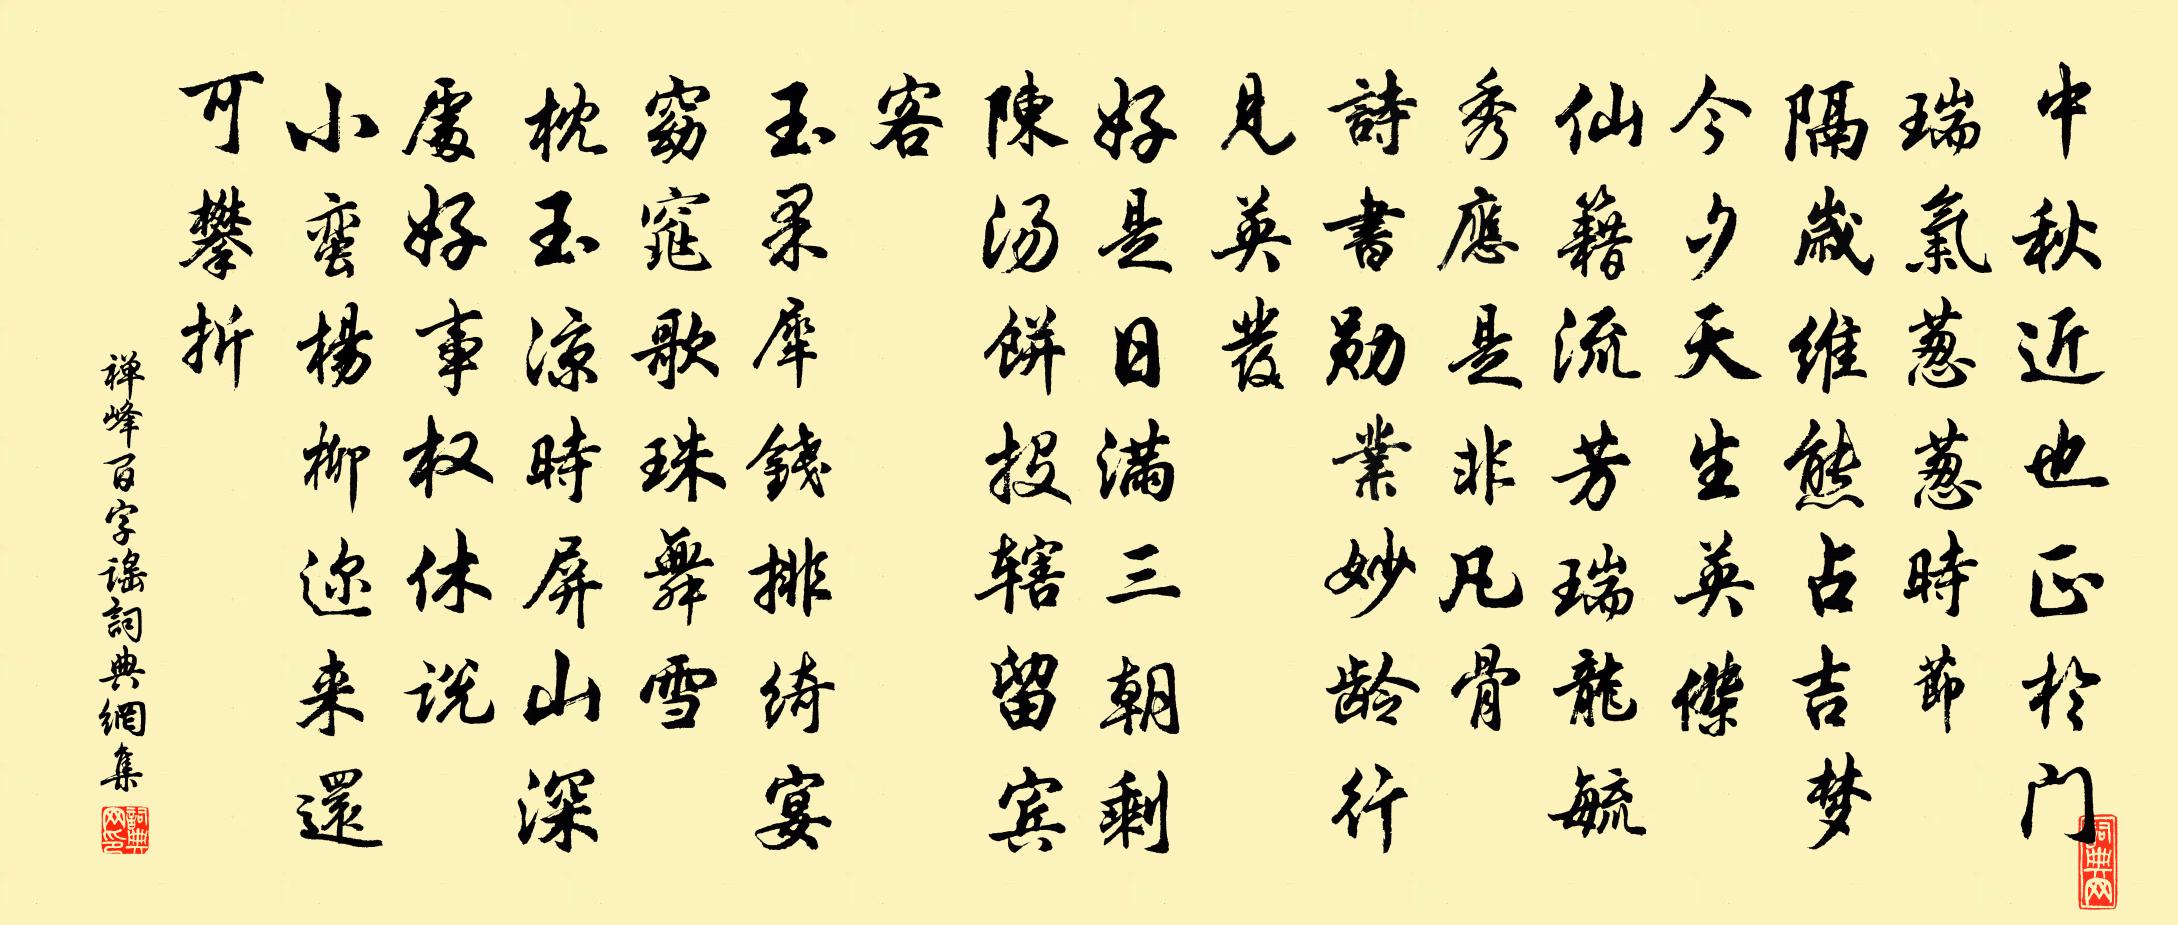 中秋近也正於门
瑞氣葱葱時節
隔歲维熊占吉梦
今夕天生英傑
仙籍流芳瑞龍毓
秀應是非凡骨
詩書勋業妙龄行
見英發
好是日满三朝剩
陳汤餅投辖留宾
客
玉果犀錢排绮宴
窈窕歌珠舞雪
枕玉凉時屏山深
處好事权休说
小蛮楊柳迩来還
可攀折
禅峰百字谣詞典網集
詞典网
詞典网印